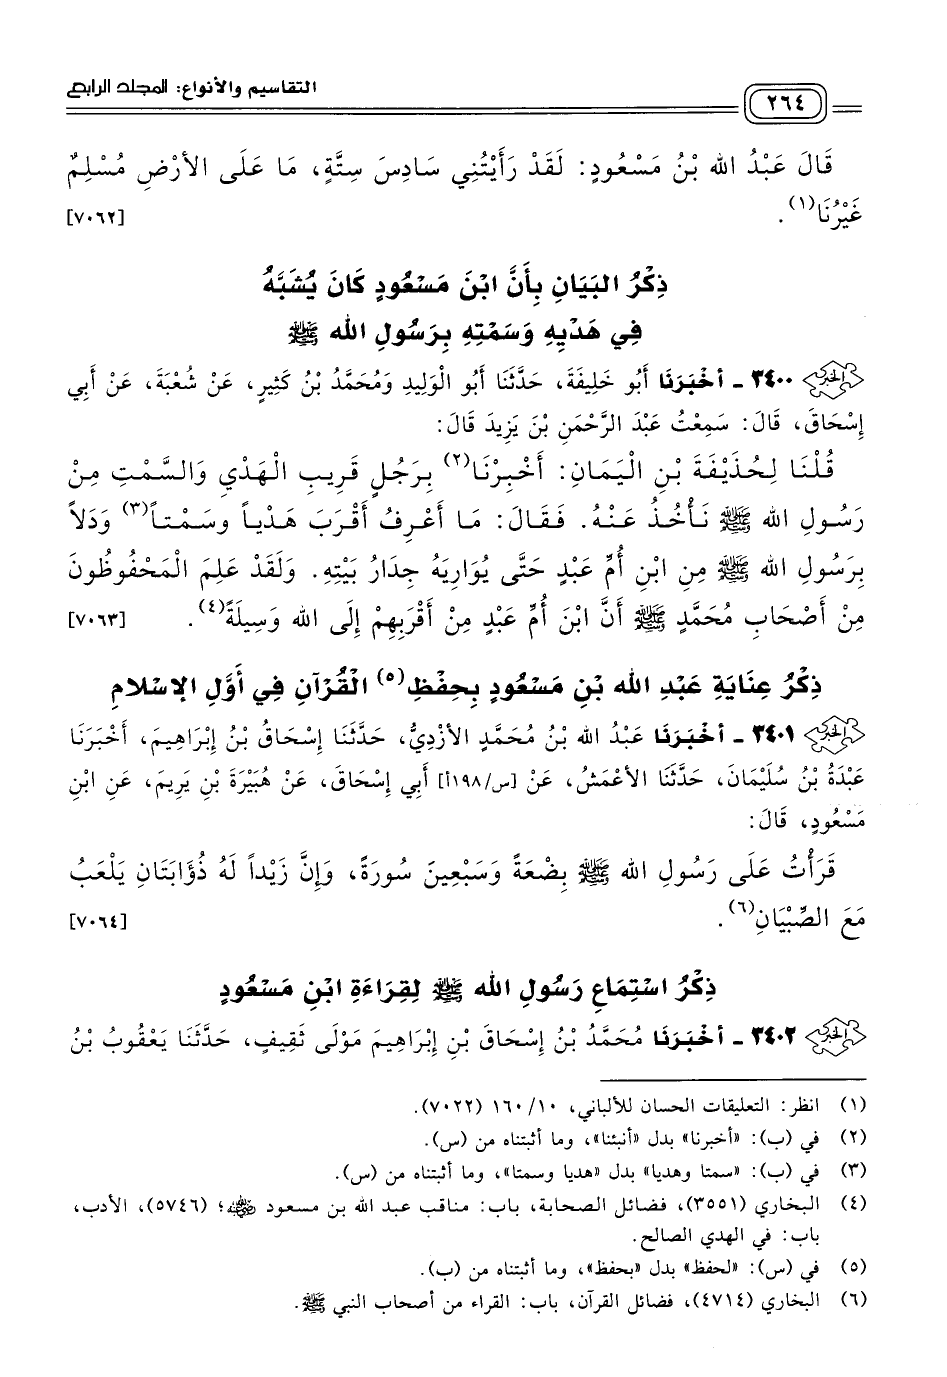 ٢٦٤ التقاسيم والأنواع: المجلد الرابع
قَالَ عَبْدُ الله بْنُ مَسْعُودٍ: لَقَدْ رَأَيْتُنِي سَادِسَ سِتَّةٍ، مَا عَلَى الأَرْضِ مُسْلِمٌ
غَيْرُنَا(١). [٧٠٦٢]
ذِكْرُ البَيَانِ بِأَنَّ ابْنَ مَسْعُودٍ كَانَ يُشَبَّهُ
فِي هَدْيِهِ وَسَمْتِهِ بِرَسُولِ الله ﷺ
الخبر ٣٤٠٠ - أَخْبَرَنَا أَبُو خَلِيفَةَ، حَدَّثَنَا أَبُو الْوَلِيدِ وَمُحَمَّدُ بْنُ كَثِيرٍ، عَنْ شُعْبَةَ، عَنْ أَبِي
إِسْحَاقَ، قَالَ: سَمِعْتُ عَبْدَ الرَّحْمَنِ بْنَ يَزِيدَ قَالَ:
قُلْنَا لِحُذَيْفَةَ بْنِ الْيَمَانِ: أَخْبِرْنَا(٢) بِرَجُلٍ قَرِيبِ الْهَدْيِ وَالسَّمْتِ مِنْ
رَسُولِ الله ﷺ نَأْخُذُ عَنْهُ. فَقَالَ: مَا أَعْرِفُ أَقْرَبَ هَدْياً وَسَمْتاً(٣) وَدَلاً
بِرَسُولِ الله ﷺ مِنِ ابْنِ أُمِّ عَبْدٍ حَتَّى يُوَارِيَهُ جِدَارُ بَيْتِهِ. وَلَقَدْ عَلِمَ الْمَحْفُوظُونَ
مِنْ أَصْحَابِ مُحَمَّدٍ ﷺ أَنَّ ابْنَ أُمِّ عَبْدٍ مِنْ أَقْرَبِهِمْ إِلَى الله وَسِيلَةً(٤). [٧٠٦٣]
ذِكْرُ عِنَايَةِ عَبْدِ الله بْنِ مَسْعُودٍ بِحِفْظِ(٥) الْقُرْآنِ فِي أَوَّلِ الإِسْلَامِ
الخبر ٣٤٠١ - أَخْبَرَنَا عَبْدُ الله بْنُ مُحَمَّدٍ الأَزْدِيُّ، حَدَّثَنَا إِسْحَاقُ بْنُ إِبْرَاهِيمَ، أَخْبَرَنَا
عَبْدَةُ بْنُ سُلَيْمَانَ، حَدَّثَنَا الأَعْمَشُ، عَنْ [س/١٩٨أ] أَبِي إِسْحَاقَ، عَنْ هُبَيْرَةَ بْنِ يَرِيمَ، عَنِ ابْنِ
مَسْعُودٍ، قَالَ:
قَرَأْتُ عَلَى رَسُولِ الله ﷺ بِضْعَةً وَسَبْعِينَ سُورَةً، وَإِنَّ زَيْداً لَهُ ذُؤَابَتَانِ يَلْعَبُ
مَعَ الصِّبْيَانِ(٦). [٧٠٦٤]
ذِكْرُ اسْتِمَاعِ رَسُولِ الله ﷺ لِقِرَاءَةِ ابْنِ مَسْعُودٍ
الخبر ٣٤٠٢ - أَخْبَرَنَا مُحَمَّدُ بْنُ إِسْحَاقَ بْنِ إِبْرَاهِيمَ مَوْلَى ثَقِيفٍ، حَدَّثَنَا يَعْقُوبُ بْنُ
(١) انظر: التعليقات الحسان للألباني، ١٠/ ١٦٠ (٧٠٢٢).
(٢) في (ب): «أخبرنا» بدل «أنبئنا»، وما أثبتناه من (س).
(٣) في (ب): «سمتا وهديا» بدل «هديا وسمتا»، وما أثبتناه من (س).
(٤) البخاري (٣٥٥١)، فضائل الصحابة، باب: مناقب عبد الله بن مسعود ﷺ؛ (٥٧٤٦)، الأدب،
باب: في الهدي الصالح.
(٥) في (س): «لحفظ» بدل «بحفظ»، وما أثبتناه من (ب).
(٦) البخاري (٤٧١٤)، فضائل القرآن، باب: القراء من أصحاب النبي ﷺ.